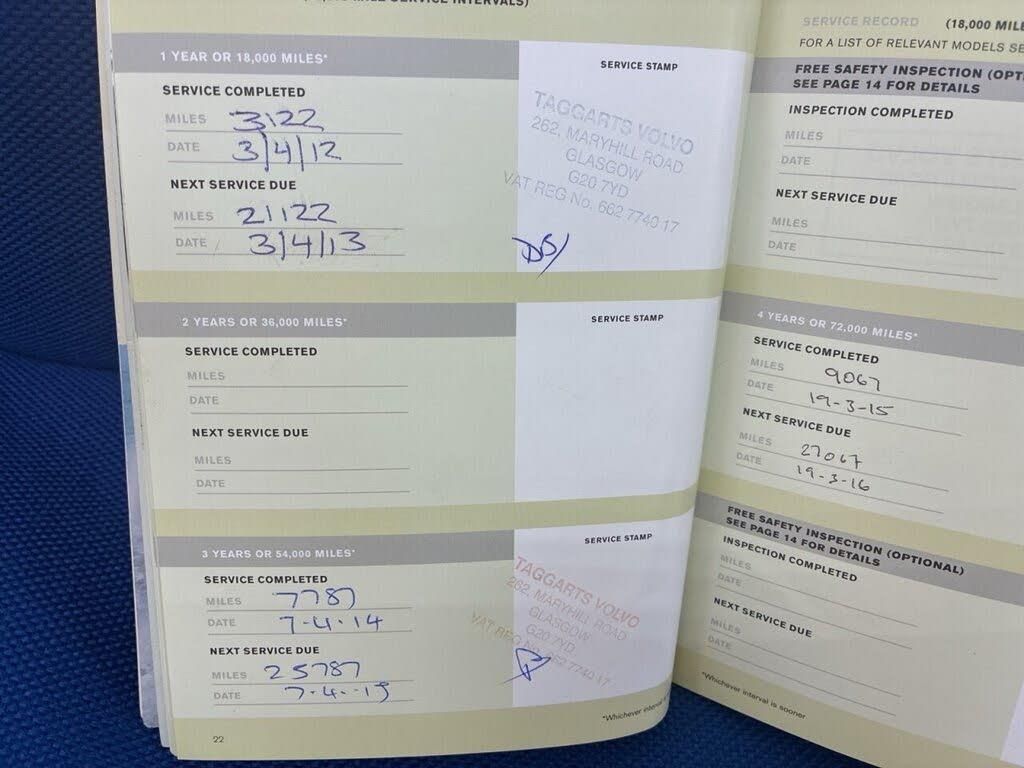 MILE SERVICE INTERVALS)
1 YEAR OR 18,000 MILES*
SERVICE COMPLETED
MILES 3122
DATE 3/4/12
NEXT SERVICE DUE
MILES 21122
DATE 3/4/13
SERVICE STAMP
TAGGARTS VOLVO
262, MARYHILL ROAD
GLASGOW
G20 7YD
VAT REG No. 662 7740 17
2 YEARS OR 36,000 MILES*
SERVICE COMPLETED
MILES
DATE
NEXT SERVICE DUE
MILES
DATE
SERVICE STAMP
3 YEARS OR 54,000 MILES*
SERVICE COMPLETED
MILES 7787
DATE 7.4.14
NEXT SERVICE DUE
MILES 25787
DATE 7.4.15
SERVICE STAMP
TAGGARTS VOLVO
262, MARYHILL ROAD
GLASGOW
G20 7YD
VAT REG No. 662 7740 17
*Whichever
22
SERVICE RECORD (18,000
FOR A LIST OF RELEVANT MODELS
FREE SAFETY INSPECTION
SEE PAGE 14 FOR DETAILS
INSPECTION COMPLETED
MILES
DATE
NEXT SERVICE DUE
MILES
DATE
4 YEARS OR 72,000 MILES*
SERVICE COMPLETED
MILES 9067
DATE 19-3-15
NEXT SERVICE DUE
MILES 27067
DATE 19-3-16
FREE SAFETY INSPECTION (OPTIONAL)
SEE PAGE 14 FOR DETAILS
INSPECTION COMPLETED
MILES
DATE
NEXT SERVICE DUE
MILES
DATE
*Whichever interval is sooner